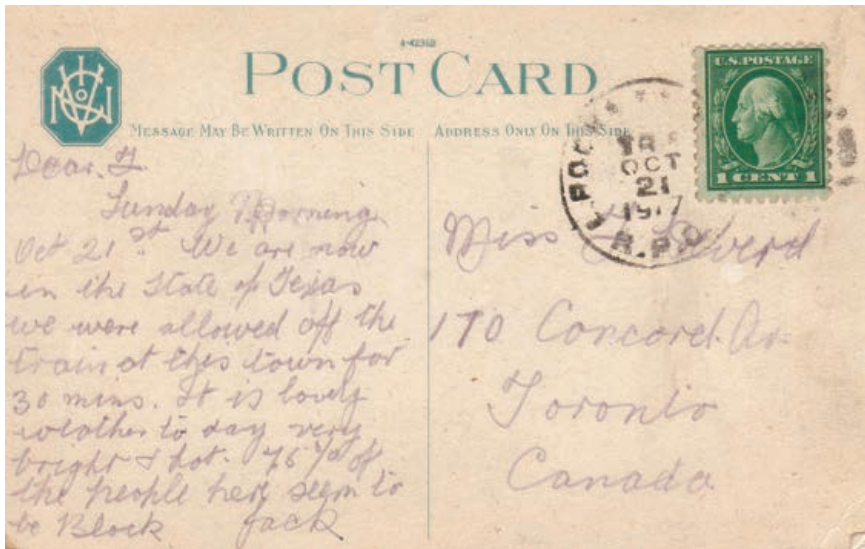 4-42368
POST CARD
MESSAGE MAY BE WRITTEN ON THIS SIDE
ADDRESS ONLY ON THIS SIDE
U.S. POSTAGE
1 CENT 1
TR
OCT
21
1917
R.P.O.
Dear F
Sunday Morning
Oct 21st. We are now
in the State of Texas
we were allowed off the
train at this town for
30 mins. It is lovely
weather to day very
bright & hot. 75% of
the people here seem to
be Black Jack
Miss
170 Concord Av.
Toronto
Canada